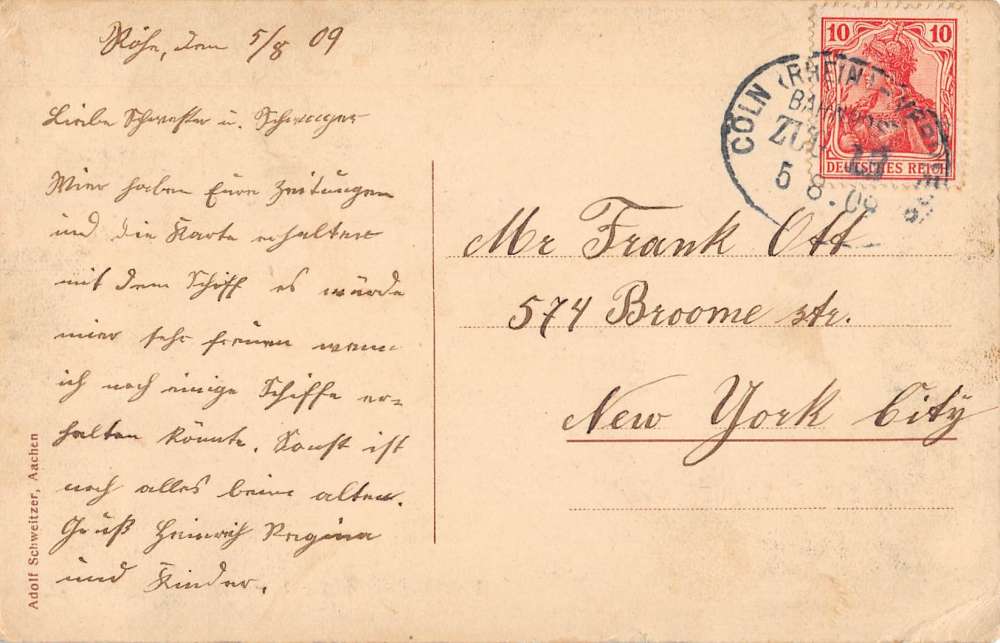 Röhe, den 5/8 09
Liebe Schwester u. Schwager
Wier haben Eure Zeitungen
und die Karte erhalten
mit dem Schiff es würde
mier sehr freuen wenn
ich noch einige Schiffe er=
halten könnte. Sonst ist
noch alles beim alten.
Gruß Heinrich Regina
und Kinder.
Adolf Schweitzer, Aachen
10 10
DEUTSCHES REICH
CÖLN (RHEIN)
BAHNPOST
ZUG
5 8.09
Mr Frank Ott
574 Broome str.
New York City